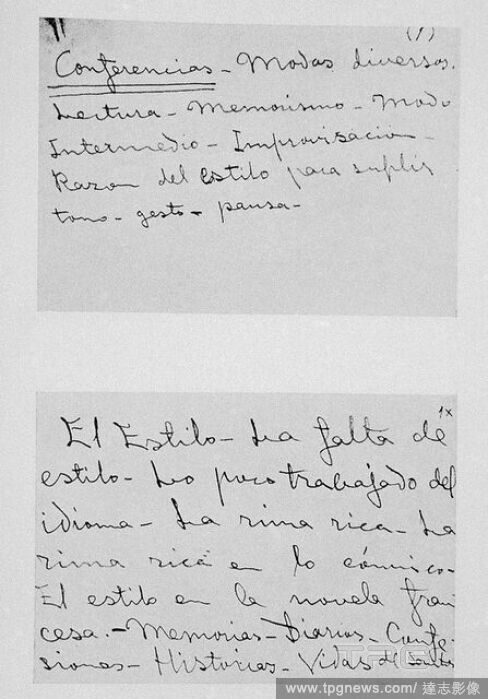 (1)
Conferencias - Modas diversos.
Lectura - Memorismo - Modo
Intermedio - Improvisación -
Razon del estilo para suplir
tono - gesto - pausa -
1x
El Estilo - La falta de
estilo - Lo poco trabajado del
idioma - La rima rica - La
rima rica en lo cómico -
El estilo en la novela fran
cesa. - Memorias - Diarios - Confe-
siones - Historias - Vidas de
TPG
www.tpgnews.com / 達志影像